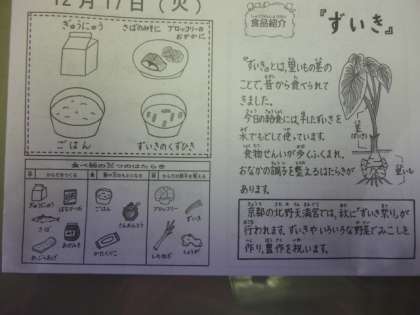 12月17日(火)
ぎゅうにゅう
さばのみそに
ブロッコリーの
おかかに
ごはん
ずいきのくずひき
食べ物の三つのはたらき
ぎゅうにゅう
さば
みそ
ごはん
さんおんとう
かたくりこ
ブロッコリー
ずいき
しょうが
食品紹介
『ずいき』
『ずいき』とは、里いもの茎の
ことで、昔から食べられて
きました。
今日の給食には、干したずいきを
水でもどして使っています。
食物せんいが多くふくまれ、
おなかの調子を整えるはたらきが
あります。
京都の北野天満宮では、秋に"ずいき祭り"が
行われます。ずいきやいろいろな野菜でみこしを
作り、豊作を祝います。